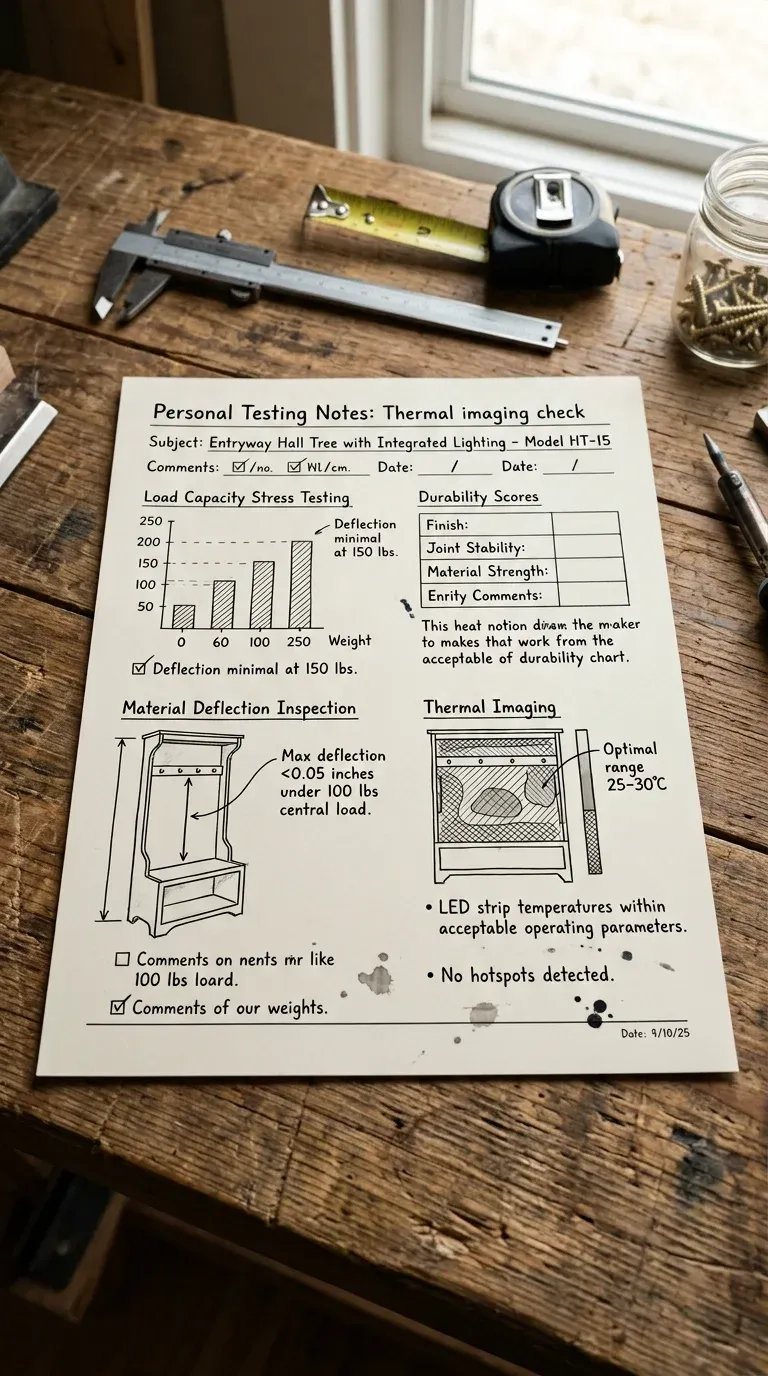 Personal Testing Notes: Thermal imaging check
Subject: Entryway Hall Tree with Integrated Lighting – Model HT-15
Comments: ☑/no. ☑ Wl./cm. Date: / Date: /
Load Capacity Stress Testing
250
200
150
100
50
0 60 100 250 Weight
Deflection
minimal
at 150 lbs.
☑ Deflection minimal at 150 lbs.
Durability Scores
Finish:
Joint Stability:
Material Strength:
Enrity Comments:
This heat notion the maker
to makes that work from the
acceptable of durability chart.
Material Deflection Inspection
Max deflection
<0.05 inches
under 100 lbs
central load.
☐ Comments on nents like
100 lbs loard.
☑ Comments of our weights.
Thermal Imaging
Optimal
range
25–30°C
• LED strip temperatures within
acceptable operating parameters.
• No hotspots detected.
Date: 9/10/25